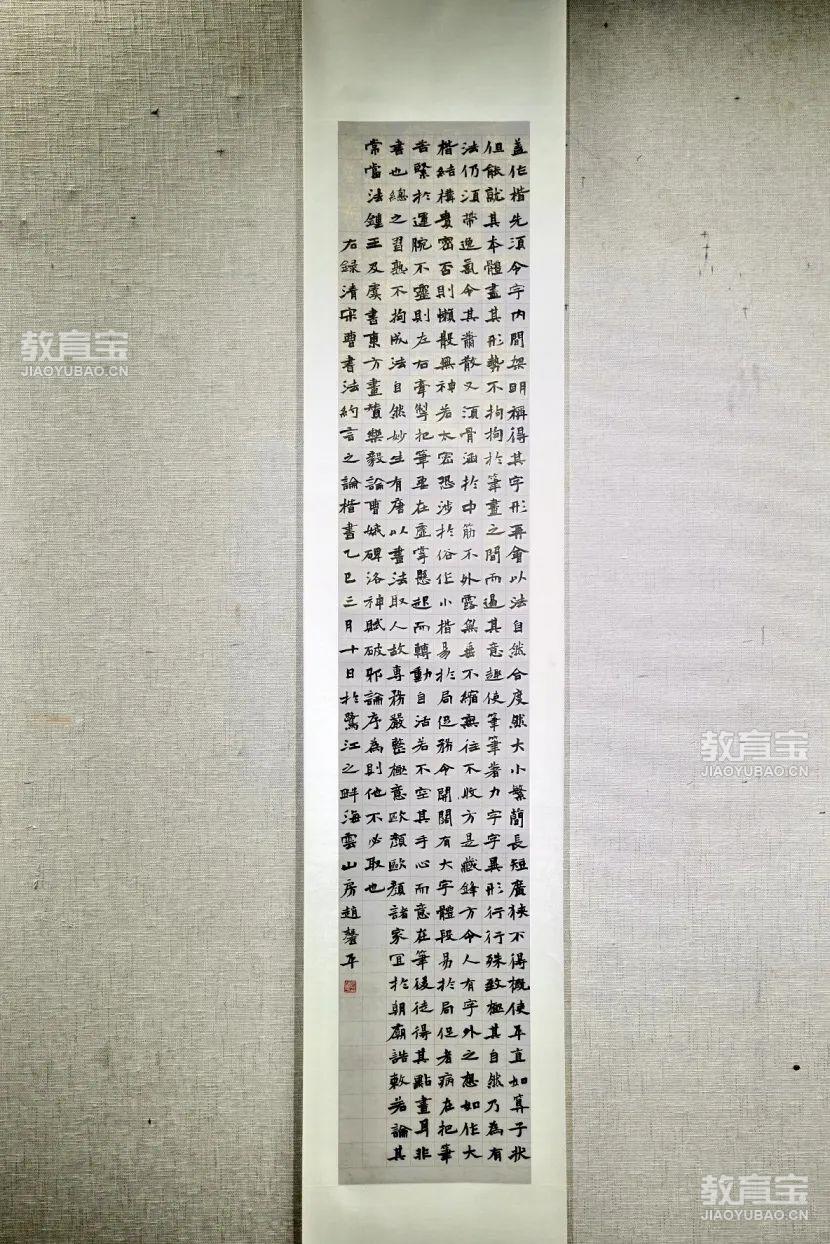 盖作楷先須令字内間架明稱得其字形再會以法自然合度然大小繁簡長短廣狹不得概使平直如算子狀
但能就其本體盡其形勢不拘拘於筆畫之間而過其意趣使筆筆著力字字異形行行殊致極其自然乃為有
法仍須帶逸氣令其蕭散又須骨涵於中筋不外露無垂不縮無往不收方是藏鋒方令人有字外之想如作大
楷結構貴密否則懶散無神若太密恐涉於俗作小楷易於局促務令開闊有大字體段易於局促者病在把筆
苦緊於運腕不靈則左右牽掣把筆要在虛掌懸起而轉動自活若不空其手心而意在筆後徒得其點畫耳非
書也總之習熟不拘成法自然妙生有唐以書法取人故專務嚴整極意歐顏歐顏諸家宜於朝廟誥敕若論其
常當法鍾王及虞書東方畫贊樂毅論曹娥碑洛神賦破邪論序為則他不必取也
右錄清宋曹書法約言之論楷書乙巳三月十日於鷺江之畔海雲山房趙馨平
教育宝
JIAOYUBAO.CN
教育宝
JIAOYUBAO.CN
教育宝
JIAOYUBAO.CN